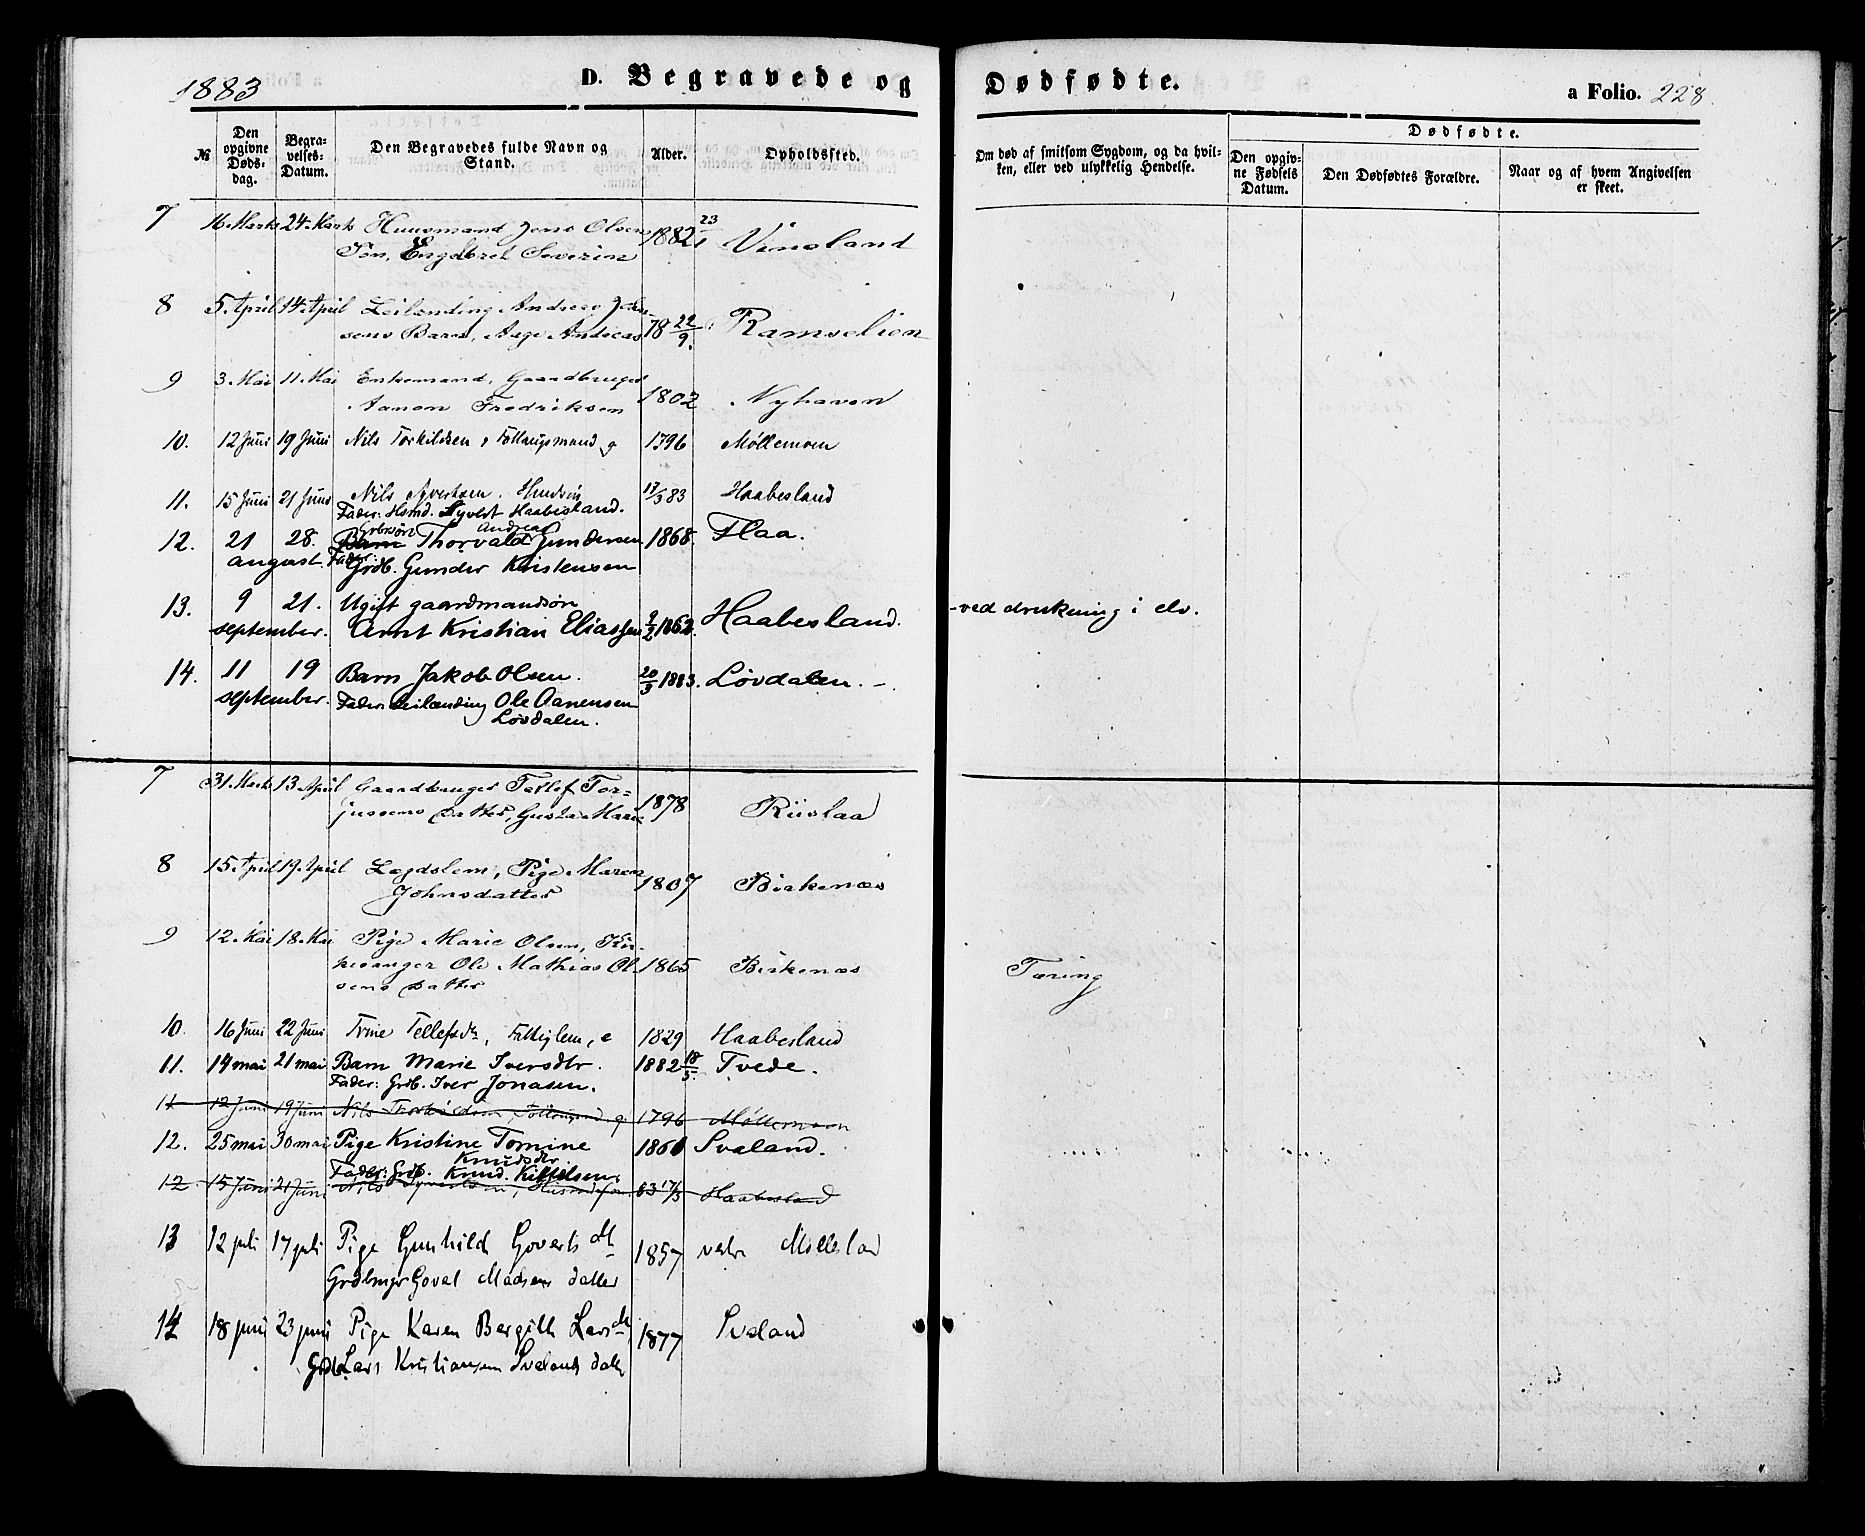 1883
D. Begravede og Dødfødte.
a Folio. 228.
№
Den opgivne Døds-dag.
Begra-velses-Datum.
Den Begravedes fulde Navn og Stand.
Alder.
Opholdssted.
Om død af smitsom Sygdom, og da hvil-ken, eller ved ulykkelig Hendelse.
Dødfødte.
Den opgiv-ne Fødsels Datum.
Den Dødfødtes Forældre.
Naar og af hvem Angivelsen er skeet.
7 16. Marts 24. Marts Huusmand Jens Olsens 1882 23/1 Vinsland
Søn, Engebret Severin
8 5. April 14. April Leilending Andreas Jen-
sens Barn, Aage Andreas 78 22/9 Ramselien
9 3. Mai 11. Mai Enkemand, Gaardbruger
Aanon Fredriksen 1802 Nyhaven
10. 12 Juni 19 Juni Nils Torkildsen, Fattaugsmand g 1796 Møllemoen
11. 15 Juni 21 Juni Nils Syvertsen. Hmdsøn 17/3 83 Haabesland
Fader: Hsmd. Syvert Haabesland.
12. 21 28. Barn Grbrsøn Thorvald Andreas Gundersen 1868. Flaa.
august Fader: Grdb. Gunder Kristensen
13. 9 21. Ugift gaardmandsøn
september. Arnt Kristian Eliassen 9/2 1862. Haabesland. - ved drukning i elv.
14. 11 19 Barn Jakob Olsen. 20/3 1883. Løvdalen. -.
september. Fader: Leilænding Ole Aanensen
Løvdalen.
7 31. Marts 13. April Gaardbruger Tellef Tor-
jussens Datter, Gusta Marie 1878 Riislaa
8 15. April 19. April Lægdslem, Pige Maren
Johnsdatter 1807 Birkenæs
9 12. Mai 18. Mai Pige Marie Olsen, Kir-
kesanger Ole Mathias Ol- 1865 Birkenæs Tæring
sens Datter
10. 16 Juni 22 Juni Trine Tellefsdtr, Fattiglem, e 1829 Haabesland
11. 14 mai 21 mai Barn Marie Iversdtr. 1882 18/5. Tvede.
Fader: Grdb. Iver Jonasen.
11 12 Juni 19 Juni Nils Thorkildsen, Fattaugsmd g 1796 Møllemoen
12. 25 mai 30 mai Pige Kristine Tomine 1861 Svaland.
Knudsdtr.
Fader: Grdb. Knud. Kittelsen.
12 15 Juni 21 Juni Nils Syvertsen, Husmdsøn 83 17/3 Haabesland
13 12 juli 17 juli Pige Gunhild Goverts dtr 1857 vestr Mollesland
Grdbrugr Goval Madsens datter
14 18 juni 23 juni Pige Karen Bergith Larsdtr 1877 Svaland
Grdb. Lars Kristiansen Svalands datter